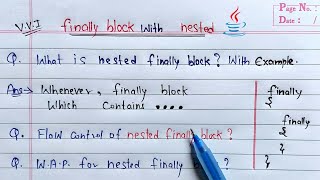 V.V.I finally block with nested
Page No.:
Date: /
Q. What is nested finally block? With Example.
Ans→ Whenever, finally block
Which Contains ....
finally
{
finally
{
}
}
Q. Flow control of nested finally block?
Q. W.A.P. for nested finally ?